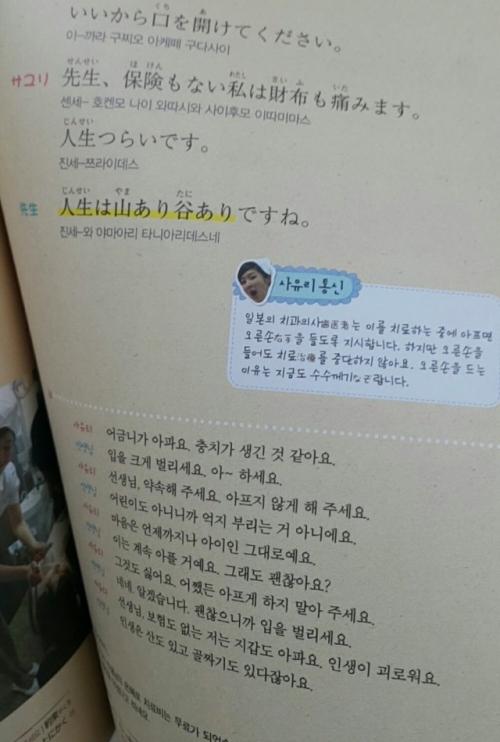 いいから口を開けてください。
아-까라 구찌오 아케떼 구다사이
サユリ 先生、保険もない私は財布も痛みます。
센세- 호켄모 나이 와따시와 사이후모 이따미마스
人生つらいです。
진세-쯔라이데스
先生 人生は山あり谷ありですね。
진세-와 야마아리 타니아리데스네
사유리 통신
일본의 치과의사歯医者는 이를 치료하는 중에 아프면
오른손右手을 들도록 지시합니다. 하지만 오른손을
들어도 치료治療를 중단하지 않아요. 오른손을 드는
이유는 지금도 수수께기なぞ랍니다.
사유리 어금니가 아파요. 충치가 생긴 것 같아요.
선생님 입을 크게 벌리세요. 아~ 하세요.
사유리 선생님, 약속해 주세요. 아프지 않게 해 주세요.
선생님 어린이도 아니니까 억지 부리는 거 아니에요.
사유리 마음은 언제까지나 아이인 그대로예요.
선생님 이는 계속 아플 거예요. 그래도 괜찮아요?
사유리 그것도 싫어요. 어쨌든 아프게 하지 말아 주세요.
선생님 네네, 알겠습니다. 괜찮으니까 입을 벌리세요.
사유리 선생님, 보험도 없는 저는 지갑도 아파요. 인생이 괴로워요.
선생님 인생은 산도 있고 골짜기도 있다잖아요.